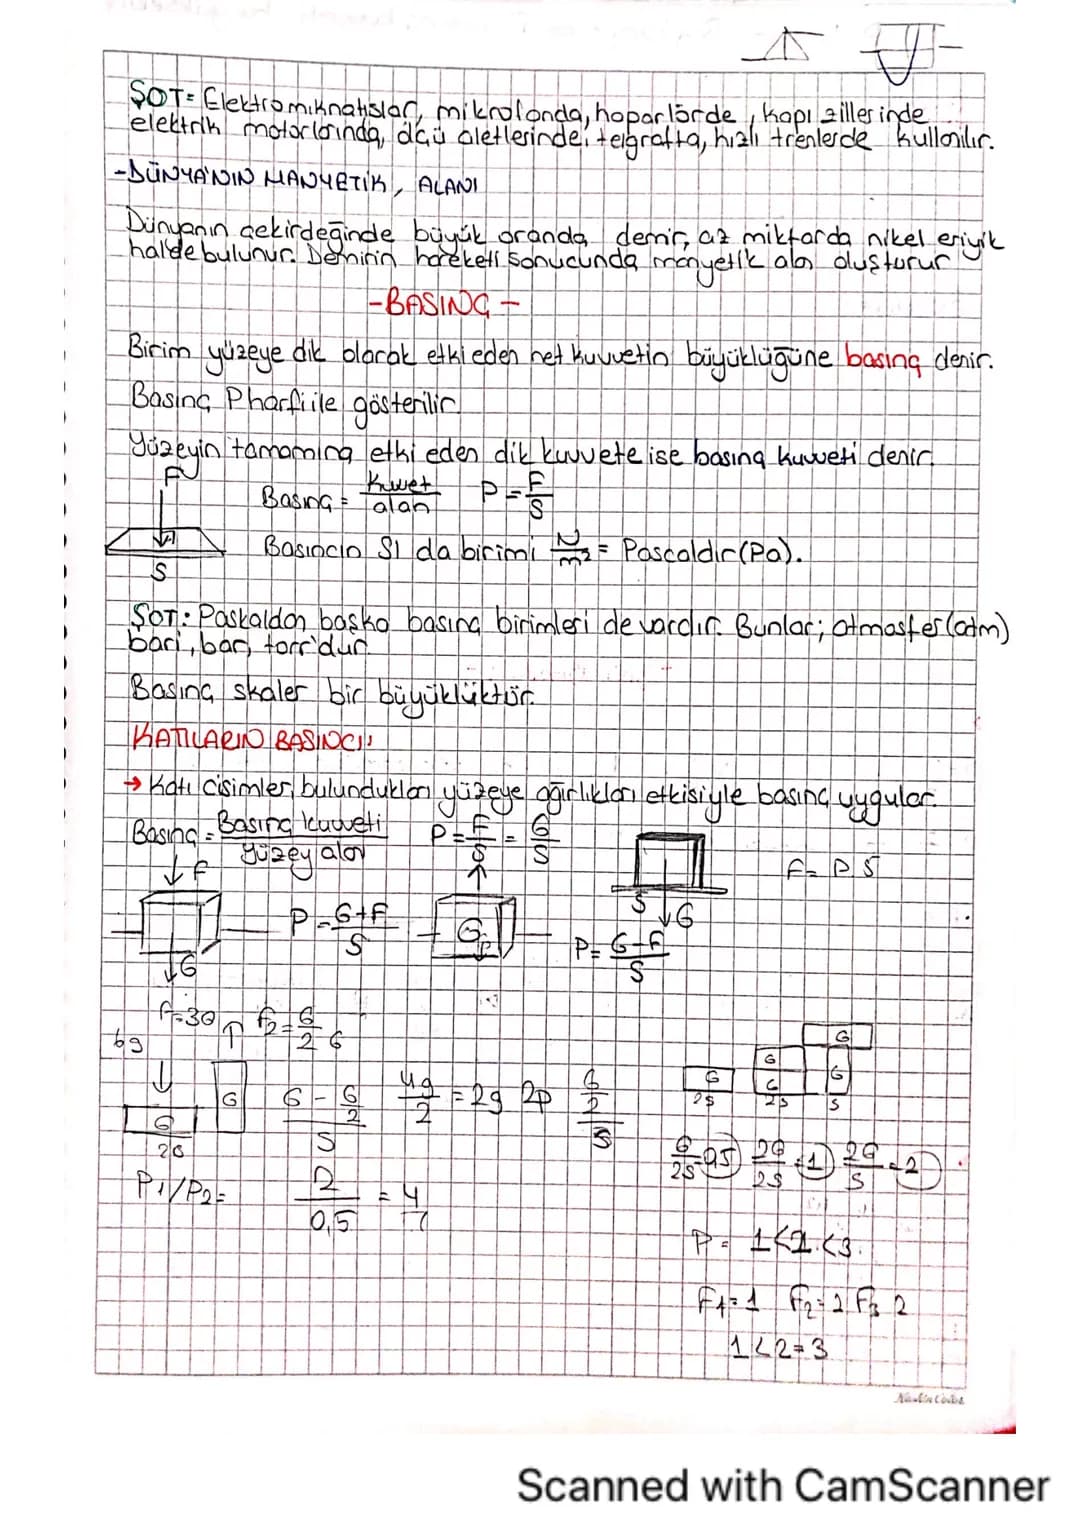 ŞOT= Elektromıknatıslar, mikrolanda, hoparlörde, kapı zillerinde
elektrik motorlarında, ölçü aletlerinde, telgrafta, hızlı trenlerde kullanılır.
-DÜNYA'NIN MANYETİK, ALANI
Dünyanın çekirdeğinde büyük oranda demir, az miktarda nikel eriyik
halde bulunur. Demirin hareketi sonucunda manyetik alan oluşturur
-BASINÇ-
Birim yüzeye dik olarak etki eden net kuvvetin büyüklüğüne basınç denir.
Basınç P harfi ile gösterilir.
Yüzeyin tamamına etki eden dik kuvvete ise basınç kuvveti denir.
F
Basınç = Kuvvet / alan P = F/S
S
Basıncın SI da birimi N/m² = Pascaldır (Pa).
ŞOT: Paskaldan başka basınç birimleri de vardır. Bunlar; atmosfer (atm)
bari, bar, torr'dur
Basınç skaler bir büyüklüktür.
KATILARIN BASINCI:
→ Katı cisimler, bulundukları yüzeye ağırlıkları etkisiyle basınç uygular.
Basınç = Basınç kuvveti / yüzey alan P = F/S = G/S
F= P S
↓F
P = G+F / S
G
P = G-F / S
S ↓G
↓G
F=3G ↑ F2 = G/2 G
6g
G G
G - G/2 / S
4g/2 = 2g 2p G/2 / S
G/2S
P1/P2=
2 / 0,5 = 4/1
G G G G G
2S 2S S
G/2S = 0,5 2G/2S = 1 2G/S = 2
P = 1<2<3.
F1=1 F2=2 F3 2
1<2=3
Scanned with CamScanner